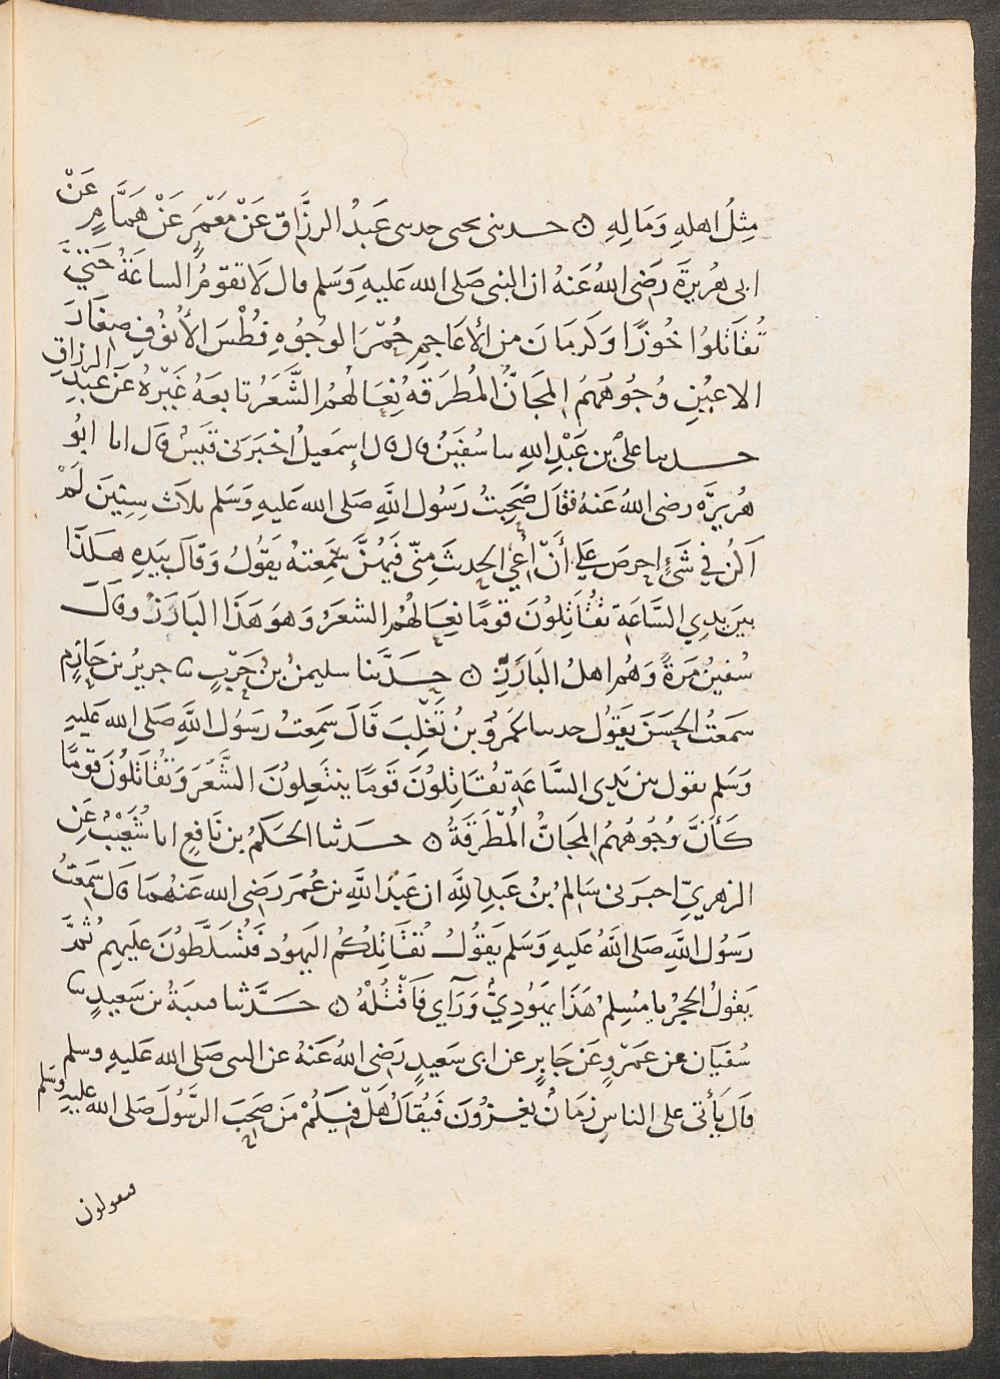 مِثلُ اهلهِ وَمَا لِهِ ۞ حدثنى يحيى حدثنى عَبدُ الرزَّاق عَنْ مَعْمَرٍ عَنْ هَمَّامٍ عَنْ
ابى هُريرةَ رَضى اللهُ عَنهُ ان النبى صَلى الله عَليهِ وَسَلم قال لَا تقوّمُ الساعَةُ حَتىَّ
تُقاتلُوا خُوزًا وَكَرمَانَ من الأعَاجمِ حُمْرَ الوُجُوهِ فُطْسَ الأُنوُفِ صِغَارَ
الاعيُنِ وُجُوهُهُمُ المَجَانُّ المُطرَقَةُ نِعَالهُمُ الشَّعَرُ تابعَهُ غَيْرُهُ عَن عَبدِ الرزاقِ
حدثنا علىُّ بن عَبْدِ اللهِ ثنا سُفيَنُ قال قال إسمَعيلُ اخبَرَنى قَيسٌ قال اتينا ابُو
هُريرَه رضى اللهُ عَنهُ فقَالَ صَحِبتُ رَسُول اللَّهِ صَلى الله عَليهِ وَسَلم ثلاثَ سِنِينَ لَمْ
اَكُن في شَئٍ احرصَ عَلى أَنْ اَعِيَ الحَديثَ مِنّى فيهنَّ سَمِعتهُ يَقُولُ وَقالَ بيَدِهِ هَكذَا
بينَ يدِي السَّاعَةِ تُقَاتِلُونَ قومًا نِعَالهُم الشعَرُ وَهوَ هَذَا البَارَزُ وقالَ
سُفينُ مَرةً وَهُم اهلُ البَارَزِ ۞ حَدَّثَنا سليمنُ بنُ حَرْبٍ ثنا جريرُ بن حَازِمٍ
سَمعتُ الحَسَنَ يَقوُل حدثنا عَمرُو بنُ تَغلِبَ قَالَ سَمِعتُ رَسُول اللَّهِ صَلى الله عَليهِ
وَسَلم يقول بين يَدي السَّاعَةِ تُقاتِلُونَ قَومًا ينتَعِلُونَ الشَّعَرَ وَتُقَاتلُونَ قومًا
كَأَنَّ وُجُوهَهُم المَجَانُّ المُطْرَقَةُ ۞ حدثنا الحَكَمُ بن نَافعٍ انا شُعَيْبٌ عَنِ
الزهريِّ اخبرنى سَالمُ بْنُ عَبدِاللهِ ان عَبدَ اللَّهِ بن عُمَرَ رَضى الله عَنهُمَا قال سَمِعتُ
رَسُول اللَّهِ صَلى اللهُ عَليهِ وَسَلم يَقوُلُ تُقَاتِلُكُم اليَهوُد فَتُسَلَّطونَ عَليهِم ثُمَّ
يَقولُ الحَجرُ يا مُسِلمُ هَذَا يَهوُدِيٌّ وَرَآي فَاقْتُلْهُ ۞ حَدَّثنا قتيبَةُ بن سَعيدٍ ثنا
سُفيَان عن عَمرٍو عَن جَابِرٍ عن ابى سَعيدٍ رَضى اللهُ عَنهُ عن النبى صَلى الله عَليهِ وسلم
قالَ يَأتى على الناسِ زمَانٌ يغزُونَ فَيُقالُ هَلْ فيكُمْ مَن صَحِبَ الرَّسُولَ صَلى الله عليهِ وسَلم
فيقولون